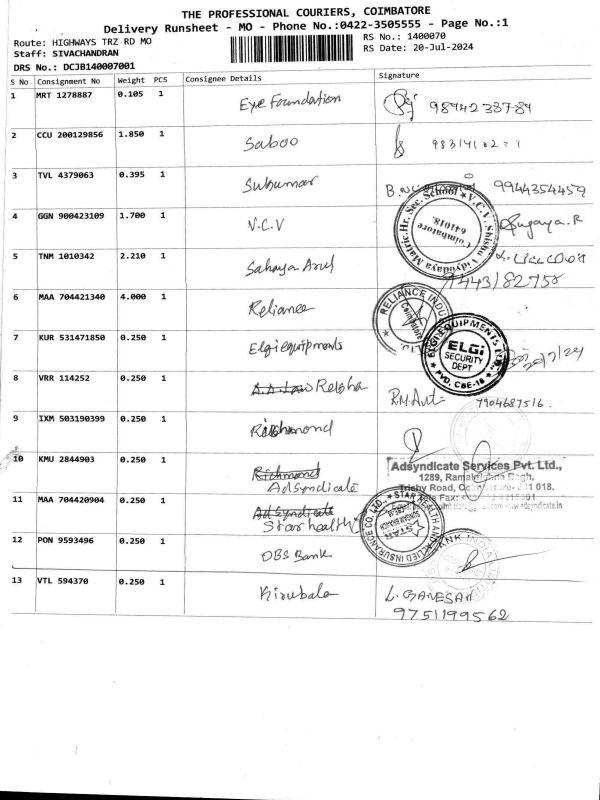 THE PROFESSIONAL COURIERS, COIMBATORE
Delivery Runsheet - MO - Phone No.:0422-3505555 - Page No.:1
Route: HIGHWAYS TRZ RD MO
RS No.: 1400070
Staff: SIVACHANDRAN
RS Date: 20-Jul-2024
DRS No.: DCJB140007001
S No Consignment No Weight PCS Consignee Details Signature
1 MRT 1278887 0.105 1 Eye Foundation 9894238784
2 CCU 200129856 1.850 1 Saboo
3 TVL 4379063 0.395 1 Sukumar 9944354459
4 GGN 900423109 1.700 1 V.C.V Sugaya.R
V.C.V. Shishu Vidyodaya Matric.Hr. Sec. School
Coimbatore 641018.
5 TNM 1010342 2.210 1 Sahaya Arul
6 MAA 704421340 4.000 1 Reliance
RELIANCE INDU LTD.
Coimbatore
7 KUR 531471850 0.250 1 Elgi equipments 20/7/24
ELGI EQUIPMENTS
ELGi
SECURITY
DEPT
PVD, CBE-18
8 VRR 114252 0.250 1 A.A. Law Rebha 7904687516.
9 IXM 503190399 0.250 1 Richmond
10 KMU 2844903 0.250 1 Richmond
Adsyndicate
Adsyndicate Services Pvt. Ltd.,
1289,
Trichy Road, 641 018.
11 MAA 704420904 0.250 1 Ad Syndicate
Star health
STAR HEALTH AND ALLIED INSURANCE CO. LTD.,
STAR
12 PON 9593496 0.250 1 DBS Bank
BANK INDIA
13 VTL 594370 0.250 1 Kirubala L. GANESAN
9751199562